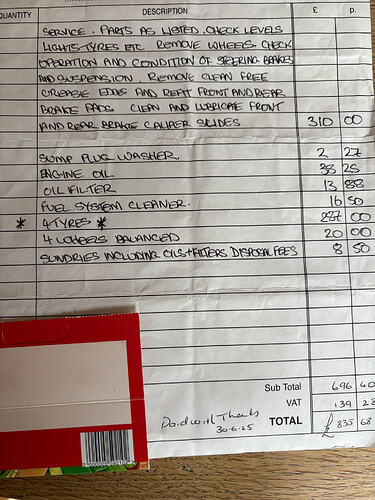 QUANTITY DESCRIPTION £ p.
SERVICE. PARTS AS LISTED. CHECK LEVELS
LIGHTS TYRES ETC REMOVE WHEELS CHECK
OPERATION AND CONDITION OF STEERING BRAKES
AND SUSPENSION. REMOVE CLEAN FREE
GREASE EDGES AND REFIT FRONT AND REAR
BRAKE PADS CLEAN AND LUBRICATE FRONT
AND REAR BRAKE CALIPER SLIDES 310 00
SUMP PLUG WASHER. 2 27
ENGINE OIL 38 25
OIL FILTER 13 88
FUEL SYSTEM CLEANER. 16 50
* 4 TYRES * 287 00
4 WHEELS BALANCED 20 00
SUNDRIES INCLUDING OILS+FILTERS DISPOSAL FEES 8 50
Sub Total 696 40
VAT 139 28
Paid with Thanks
30.6.25
TOTAL £ 835 68